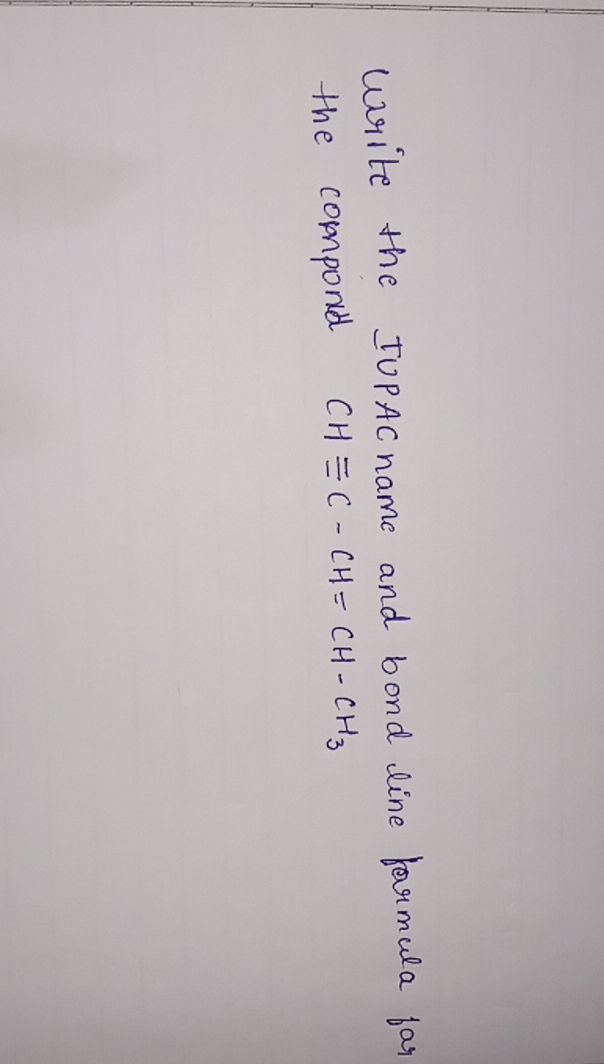 Write the IUPAC name and bond line formula for
the compond CH≡C-CH=CH-CH₃